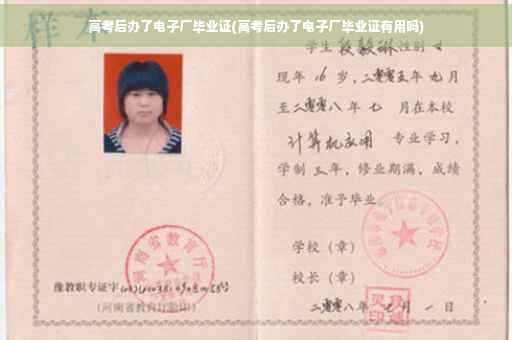 高考后办了电子厂毕业证(高考后办了电子厂毕业证有用吗)
样本
学生段毅琳性别女
现年16岁，二零零五年九月
至二零零八年七月在本校
计算机应用 专业学习，
学制三年，修业期满，成绩
合格，准予毕业。
学校（章）
校长（章）
二零零八年七月一日
河南省教育厅
豫教职专证字
号
(河南省教育厅验印)